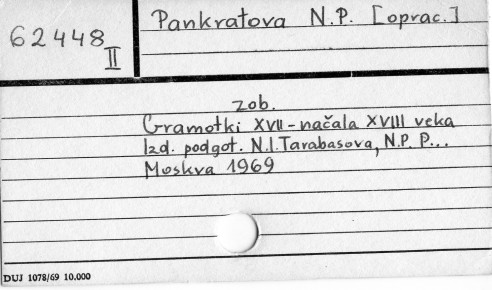 Pankratova N.P. [oprac.]
62448
II
zob.
Gramotki XVII - načala XVIII veka
Izd. podgot. N.I. Tarabasova, N.P. P...
Moskva 1969
DUJ 1078/69 10.000